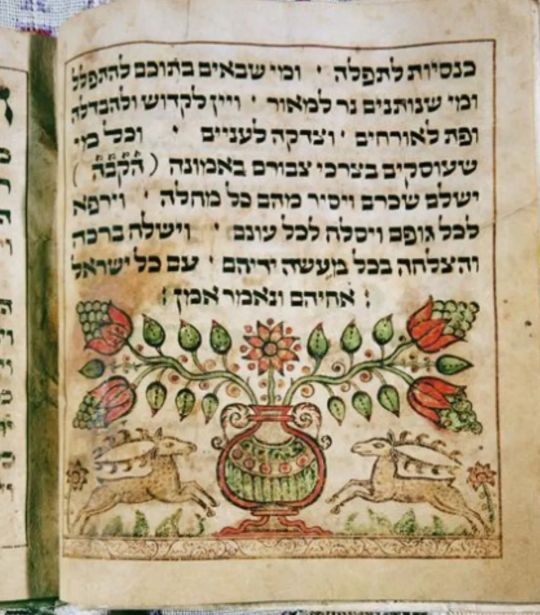 כנסיות לתפלה · ומי שבאים בתוכם להתפלל
ומי שנותנים נר למאור · ויין לקדוש ולהבדלה
ופת לאורחים · וצדקה לעניים · וכל מי
שעוסקים בצרכי צבורם באמונה (הקבה)
ישלם שכרם ויסיר מהם כל מחלה · וירפא
לכל גופם ויסלח לכל עונם · וישלח ברכה
והצלחה בכל מעשה ידיהם · עם כל ישראל
אחיהם ונאמר אמן